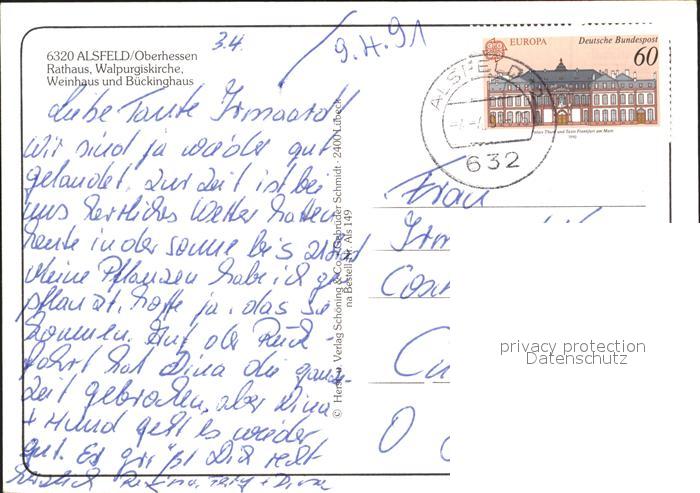 3.4.
9.4.91
6320 ALSFELD/Oberhessen
Rathaus, Walpurgiskirche,
Weinhaus und Bückinghaus
EUROPA
Deutsche Bundespost
60
Palais Thurn und Taxis Frankfurt am Main
1990
ALSFELD
632
Liebe Tante Irmgard!
Wir sind ja wieder gut
gelandet. Zur Zeit ist bei
uns herrliches Wetter hatten
heute in der Sonne bis
Meine Pflanzen habe ich ge
pflanzt, hoffe ja, das sie
kommen. Auf der Rück-
fahrt hat Dina die ganze
Zeit gebrochen, aber Dina
+ Hund geht es wieder
gut. Es grüßt Dich recht
herzlich
© Herst. u. Verlag Schöning & Co. + Gebrüder Schmidt · 2400 Lübeck
na Bestell-Nr. Als 149
Frau
Irm
O
privacy protection
Datenschutz